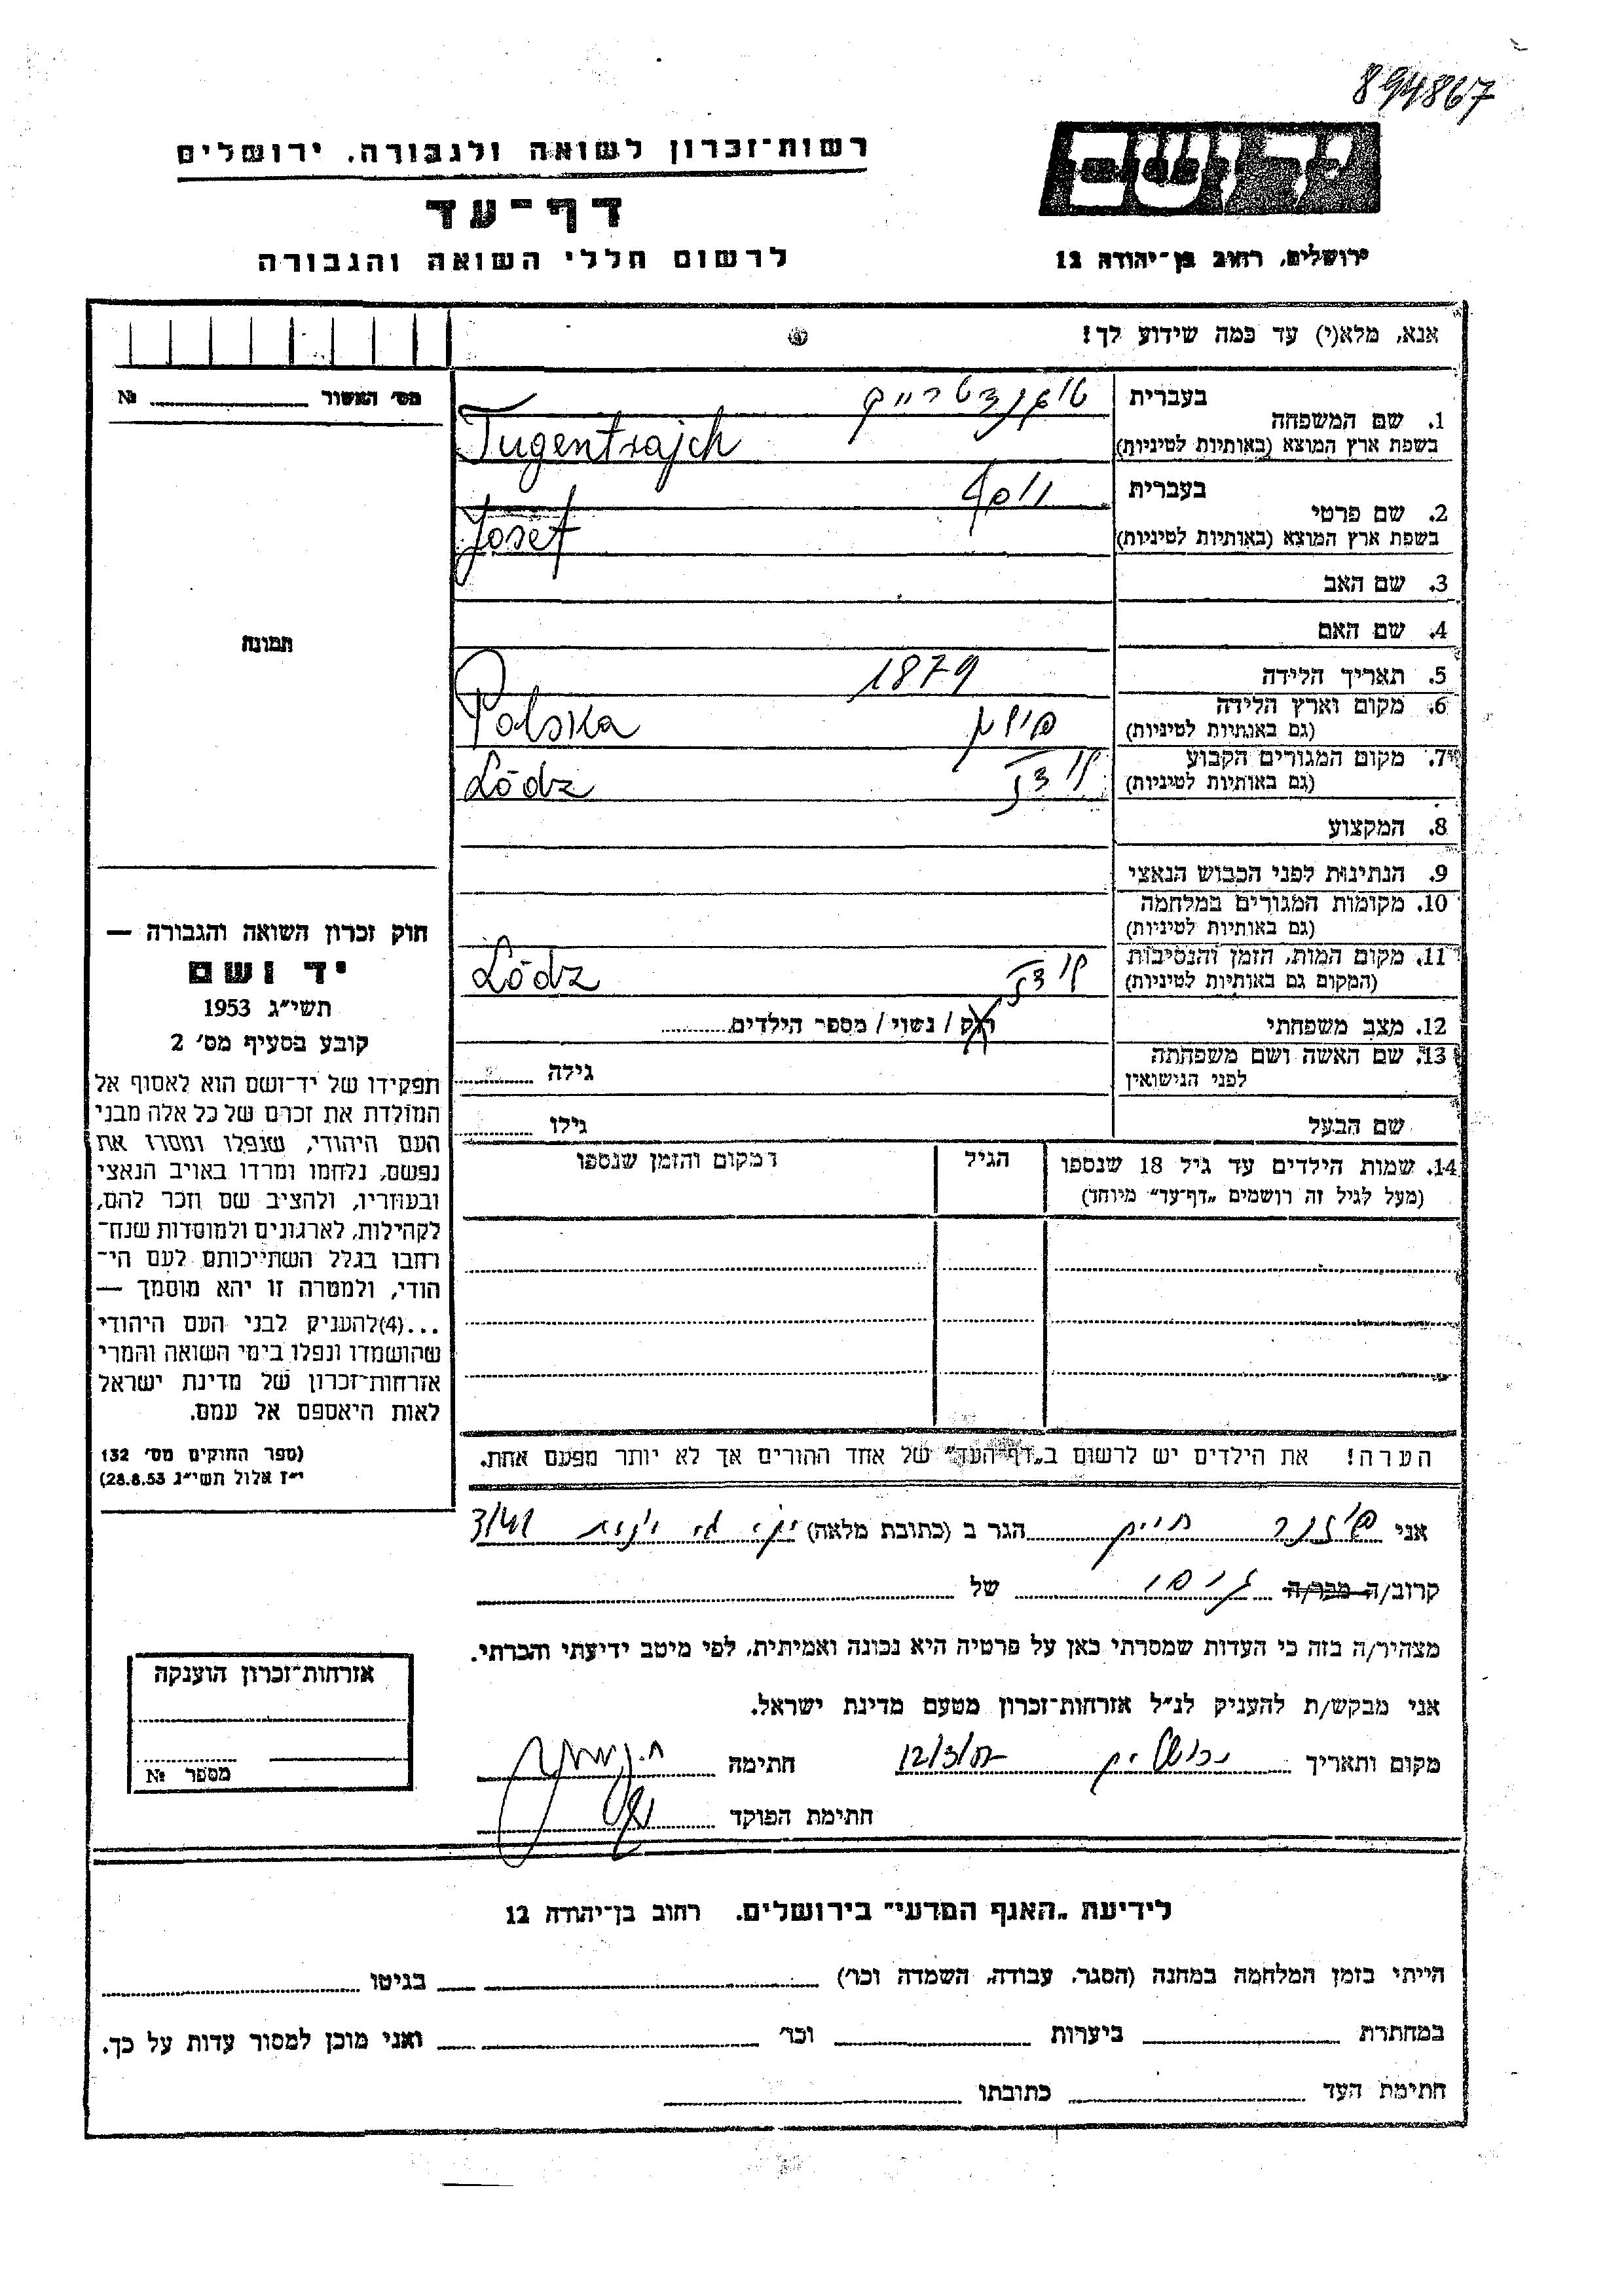 894867
יד ושם
רשות־זכרון לשואה ולגבורה, ירושלים
דף־עד
לרשום חללי השואה והגבורה
ירושלים, רחוב בן־יהודה 12
אנא, מלא(י) עד כמה שידוע לך!
מס׳ האשור № ________
תמונה
בעברית
1. שם המשפחה
בשפת ארץ המוצא (באותיות לטיניות) Tugentrajch
בעברית יוסף
2. שם פרטי
בשפת ארץ המוצא (באותיות לטיניות) Josef
3. שם האב
4. שם האם
5. תאריך הלידה 1879
6. מקום וארץ הלידה פולין Polska
(גם באותיות לטיניות)
7. מקום המגורים הקבוע לודז׳ Lódz
(גם באותיות לטיניות)
8. המקצוע
9. הנתינות לפני הכבוש הנאצי
10. מקומות המגורים במלחמה
(גם באותיות לטיניות)
11. מקום המות, הזמן והנסיבות לודז׳ Lódz
(המקום גם באותיות לטיניות)
12. מצב משפחתי רוק / נשוי / מספר הילדים
13. שם האשה ושם משפחתה גילה
לפני הנישואין
שם הבעל גילו
14. שמות הילדים עד גיל 18 שנספו הגיל המקום והזמן שנספו
(מעל לגיל זה רושמים „דף־עד” מיוחד)
הערה! את הילדים יש לרשום ב„דף־העד” של אחד ההורים אך לא יותר מפעם אחת.
חוק זכרון השואה והגבורה —
יד ושם
תשי״ג 1953
קובע בסעיף מס׳ 2
תפקידו של יד־ושם הוא לאסוף אל
המולדת את זכרם של כל אלה מבני
העם היהודי, שנפלו ומסרו את
נפשם, נלחמו ומרדו באויב הנאצי
ובעוזריו, ולהציב שם וזכר להם,
לקהילות, לארגונים ולמוסדות שנח־
רחבו בגלל השתייכותם לעם הי־
הודי, ולמטרה זו יהא מוסמך —
...(4) להעניק לבני העם היהודי
שהושמדו ונפלו בימי השואה והמרי
אזרחות־זכרון של מדינת ישראל
לאות היאספם אל עמם.
(ספר החוקים מס׳ 132
י״ז אלול תשי״ג 28.8.53)
אני חיים הגר ב (כתובת מלאה) 3/41
קרוב/ה מכר/ה של
מצהיר/ה בזה כי העדות שמסרתי כאן על פרטיה היא נכונה ואמיתית, לפי מיטב ידיעתי והכרתי.
אני מבקש/ת להעניק לנ״ל אזרחות־זכרון מטעם מדינת ישראל.
מקום ותאריך ירושלים חתימה
חתימת הפוקד
אזרחות־זכרון הוענקה
מספר №
לידיעת „האגף המדעי” בירושלים. רחוב בן־יהודה 12
הייתי בזמן המלחמה במחנה (הסגר, עבודה, השמדה וכו׳) בגיטו
במחתרת ביערות וכו׳ ואני מוכן למסור עדות על כך.
חתימת העד כתובתו